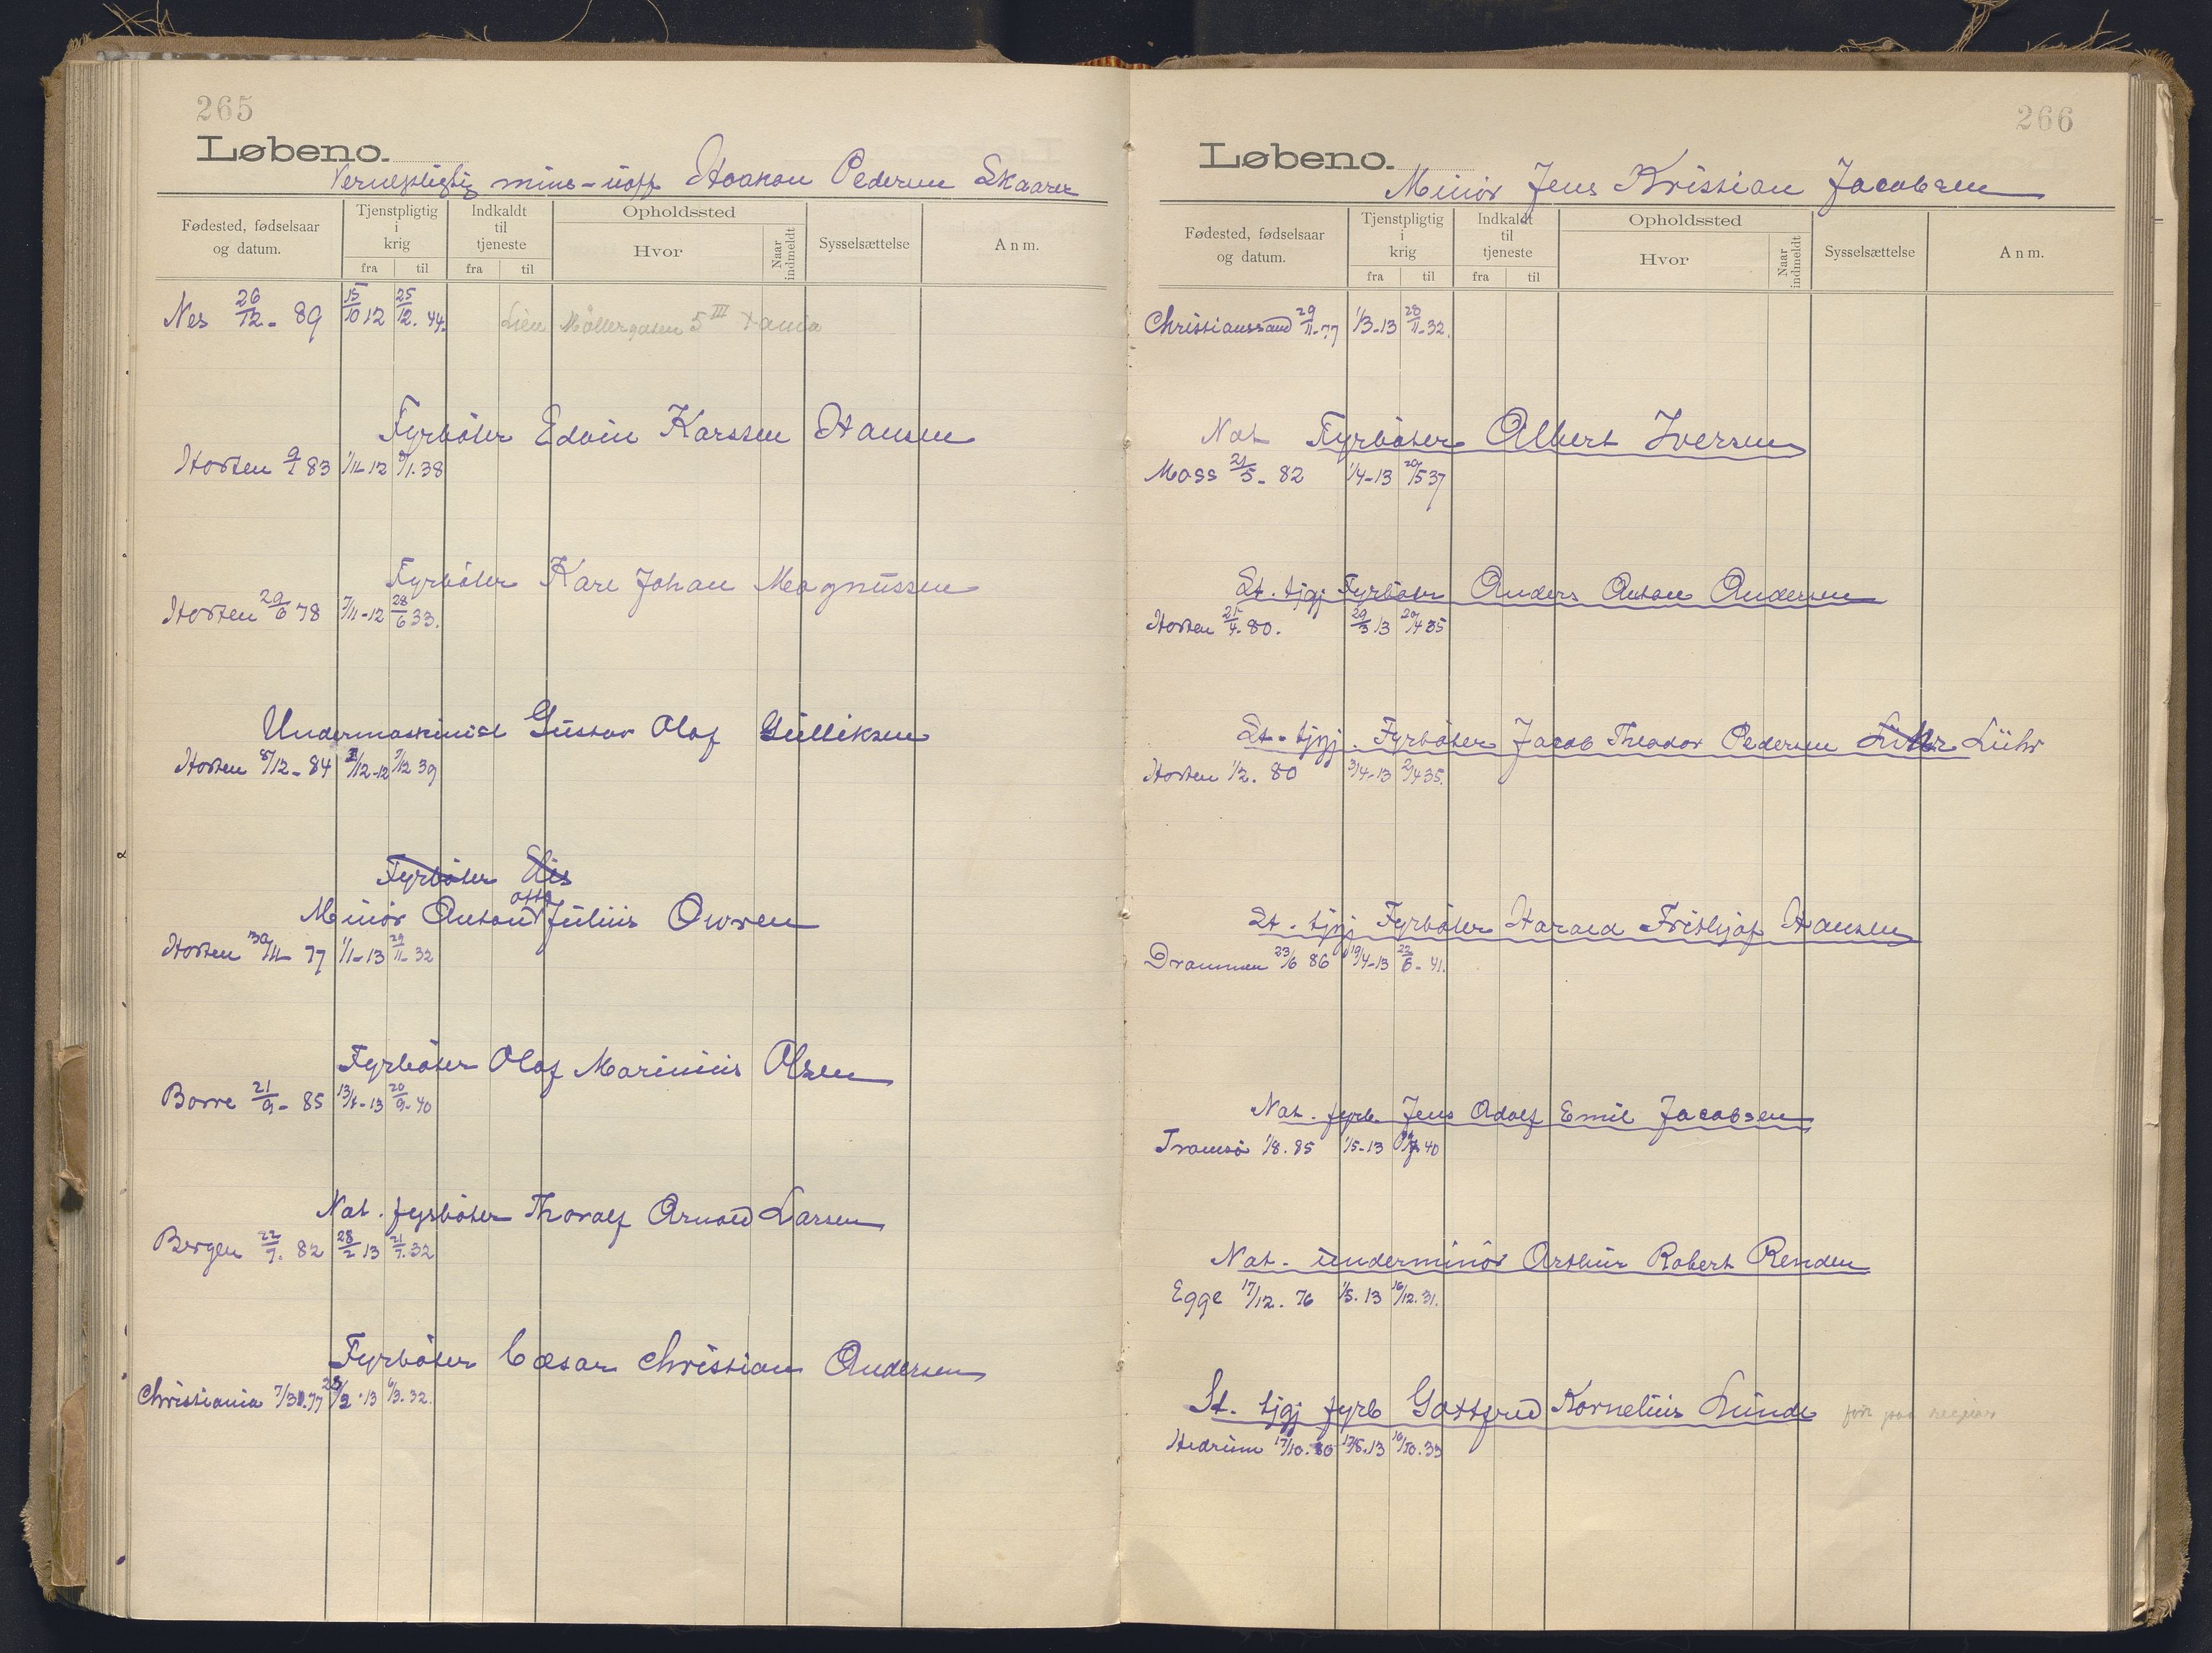 265
Løbeno.
Vernepligtig mine-uoff Haakon Pedersen Skaarer
Fødested, fødselsaar og datum.
Tjenstpligtig i krig
fra til
Indkaldt til tjeneste
fra til
Opholdssted
Hvor
Naar indmeldt
Sysselsættelse
Anm.
Nes 26/12 - 89 15/10 12 25/12. 44.
Møllergaten 5 III Xania
Fyrbøter Edvin Karsten Hansen
Horten 9/1 83 1/11 12 8/1. 38
Fyrbøter Karl Johan Magnussen
Horten 29/6 78 7/11-12 28/6 33.
Undermaskinist Gustav Olaf Gulliksen
Horten 8/12 - 84 /12-12 7/12 39
Fyrbøter Elis
Otto
Minør Anton Julius Owren
Horten 30/11 77 1/1-13 29/11 32
Fyrbøter Olaf Marinius Olsen
Borre 21/9 - 85 13/1-13 20/9-40
Nat. fyrbøter Thoralf Arnold Larsen
Bergen 22/7. 82 28/2 13 21/7. 32
Fyrbøter Cæsar Christian Andersen
Christiania 7/3.77 28/2-13 6/3.32.
266
Løbeno.
Minør Jens Kristian Jacobsen
Fødested, fødselsaar og datum.
Tjenstpligtig i krig
fra til
Indkaldt til tjeneste
fra til
Opholdssted
Hvor
Naar indmeldt
Sysselsættelse
Anm.
Christianssand 29/11-77 1/3-13 28/11-32.
Nat Fyrbøter Albert Iversen
Moss 21/5 - 82 1/4-13 20/5 37
St. tjgj Fyrbøter Anders Anton Andersen
Horten 21/4. 80. 29/3 13 20/4 35
St. tjgj. Fyrbøter Jacob Theodor Pedersen Lühr
Horten 1/2. 80 3/4-13 2/4 35.
St. tjgj Fyrbøter Harald Frithjof Hansen
Drammen 23/6 86 19/4-13 22/6 - 41.
Nat. fyrb. Jens Adolf Emil Jacobsen
Tromsø 1/8. 85 1/5-13 40
Nat. underminør Arthur Robert Renden
Egge 17/12. 76 1/5. 13 16/12. 31.
St. tjgj fyrb Gottfred Kornelius Lunde
Hedrum 17/10. 80 17/5.13 16/10. 35